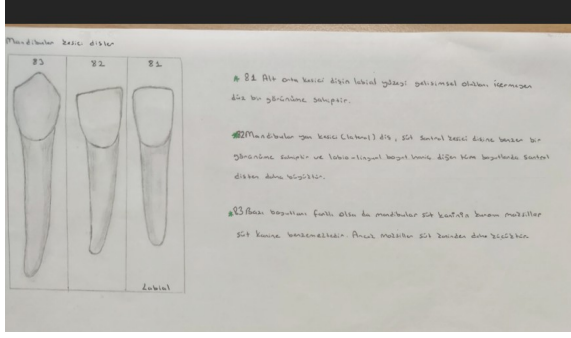 Mandibular kesici dişler
83 82 81
Labial
* 81 Alt orta kesici dişin labial yüzeyi gelişimsel olukları içermeyen
düz bir görünüme sahiptir.
*82 Mandibular yan kesici (lateral) diş, süt santral kesici dişine benzer bir
görünüme sahiptir ve labio-lingual boyut hariç diğer tüm boyutlarda santral
dişten daha büyüktür.
*83 Bazı boyutları farklı olsa da mandibular süt kaninin kuronu maksillar
süt kanine benzemektedir. Ancak maksillar süt kaninden daha küçüktür.